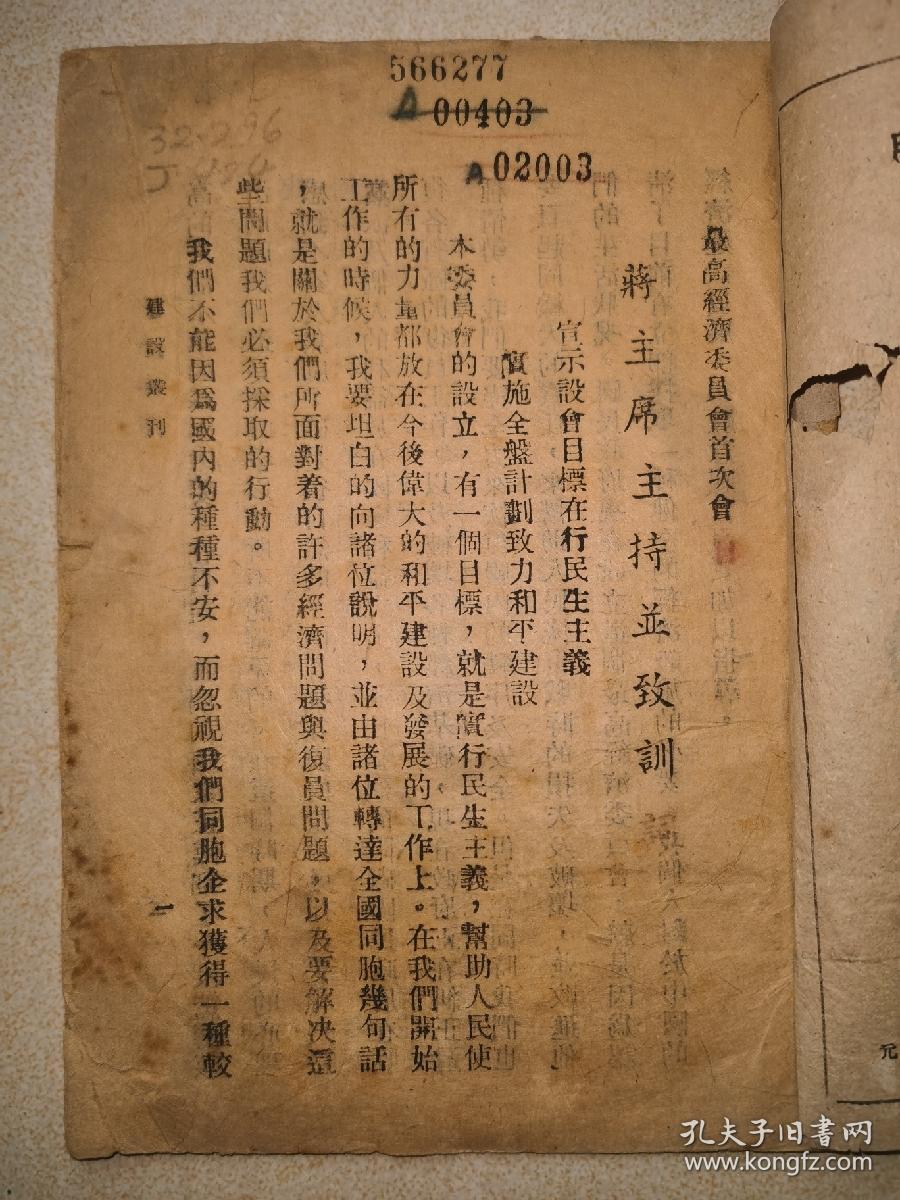 566277
A 00403
A 02003
32.236
最高經濟委員會首次會
蔣主席主持並致訓
宣示設會目標在行民生主義
實施全盤計劃致力和平建設
本委員會的設立，有一個目標，就是實行民生主義，幫助人民使
所有的力量都放在今後偉大的和平建設及發展的工作上。在我們開始
工作的時候，我要坦白的向諸位說明，並由諸位轉達全國同胞幾句話
，就是關於我們所面對着的許多經濟問題與復員問題，以及要解決這
些問題我們必須採取的行動。
我們不能因爲國內的種種不安，而忽視我們同胞企求獲得一種較
建設叢刊
一
元
孔夫子旧书网
www.kongfz.com